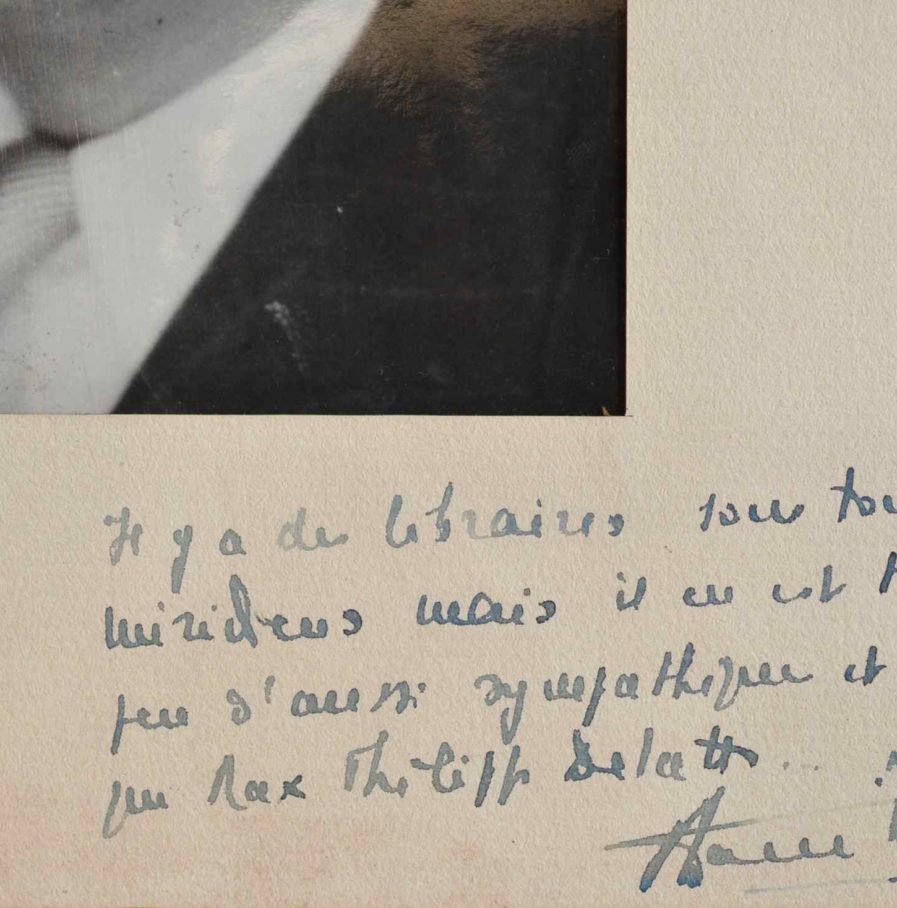 Il y a des libraires sous tou
méridiens mais il en est t
peu d'aussi sympathiques et
que Max Philippe Delatte ...